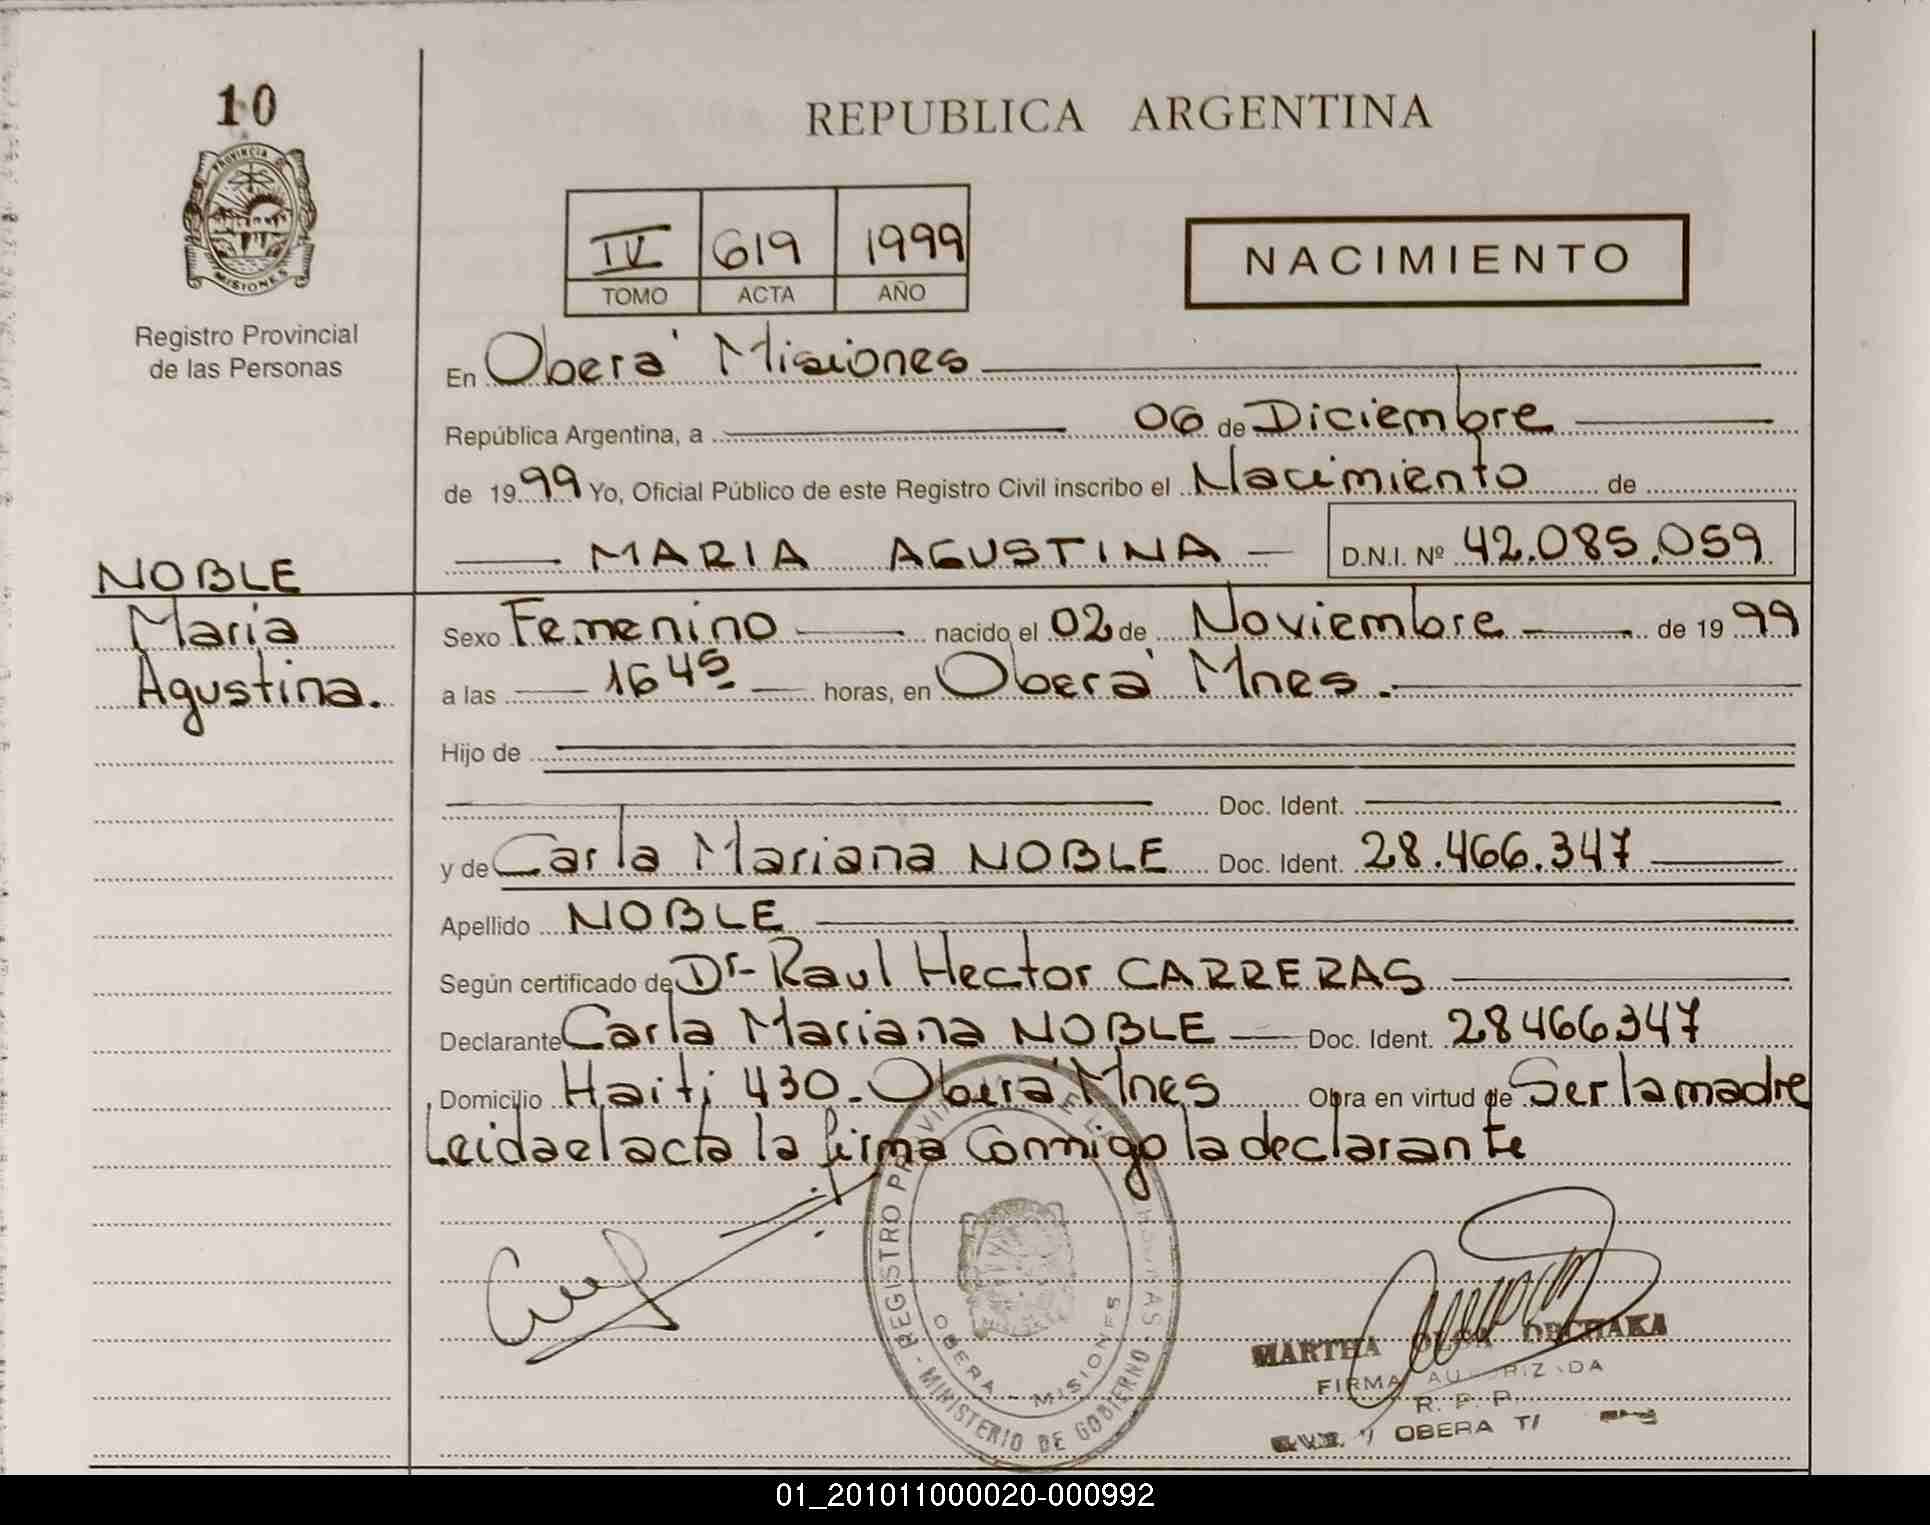 10
PROVINCIA DE
MISIONES
Registro Provincial
de las Personas
REPUBLICA ARGENTINA
IV 619 1999
TOMO ACTA AÑO
NACIMIENTO
En Oberá Misiones
República Argentina, a 06 de Diciembre
de 1999 Yo, Oficial Público de este Registro Civil inscribo el Nacimiento de
MARIA AGUSTINA D.N.I. Nº 42.085.059
NOBLE
Maria
Agustina.
Sexo Femenino nacido el 02 de Noviembre de 1999
a las 16 45 horas, en Oberá Mnes.
Hijo de
Doc. Ident.
y de Carla Mariana NOBLE Doc. Ident. 28.466.347
Apellido NOBLE
Según certificado de Dr- Raul Hector CARRERAS
Declarante Carla Mariana NOBLE Doc. Ident. 28466347
Domicilio Haití 430- Oberá Mnes Obra en virtud de Ser la madre
Leida el acta la firma Conmigo la declarante
REGISTRO PROVINCIAL DE LAS PERSONAS
OBERA - MISIONES
MINISTERIO DE GOBIERNO
MARTHA OLGA
FIRMA AUTORIZADA
R. P. P.
OBERA
01_201011000020-000992